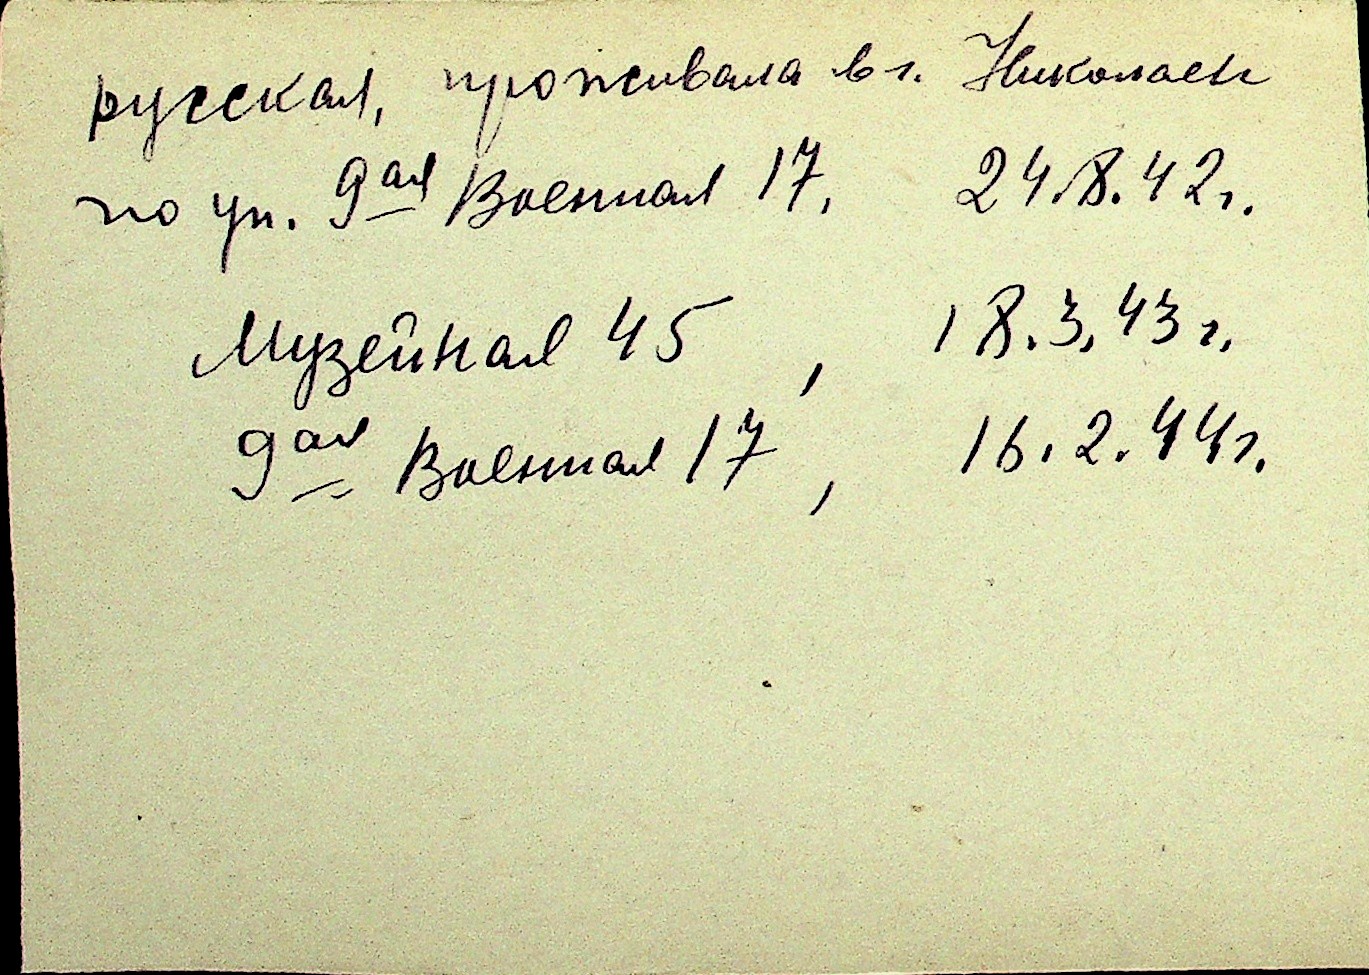 русская, проживала в г. Николаеве
по ул. 9ая Военная 17, 24.8.42г.
Музейная 45, 18.3.43г.
9ая Военная 17, 16.2.44г.